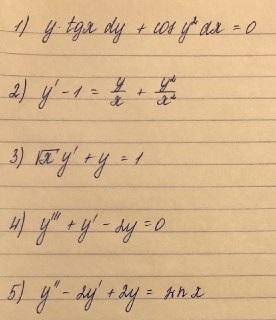 1) y·tgx dy + cos y² dx = 0
2) y' - 1 = y/x + y²/x²
3) √x y' + y = 1
4) y''' + y' - 2y = 0
5) y'' - 2y' + 2y = sin x